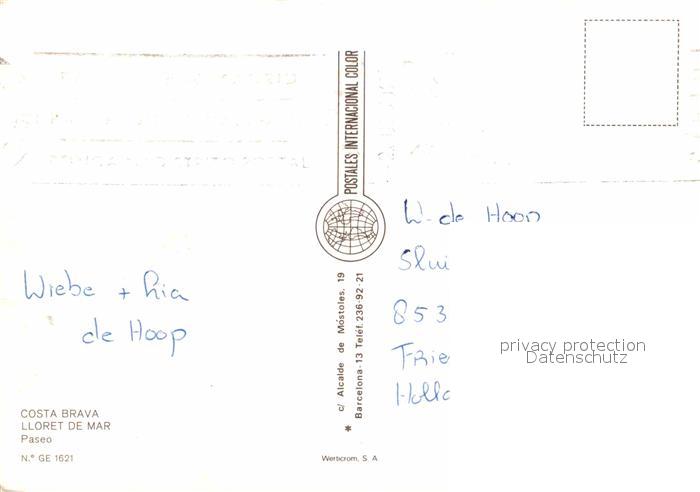 POSTALES INTERNACIONAL COLOR
c/ Alcalde de Móstoles, 19
Barcelona-13 Teléf. 236-92-21
*
Wiebe + Ria
de Hoop
COSTA BRAVA
LLORET DE MAR
Paseo
N.º GE 1621
Werticrom, S. A
W. de Hoop
Slui
853
Frie
Holla
privacy protection
Datenschutz